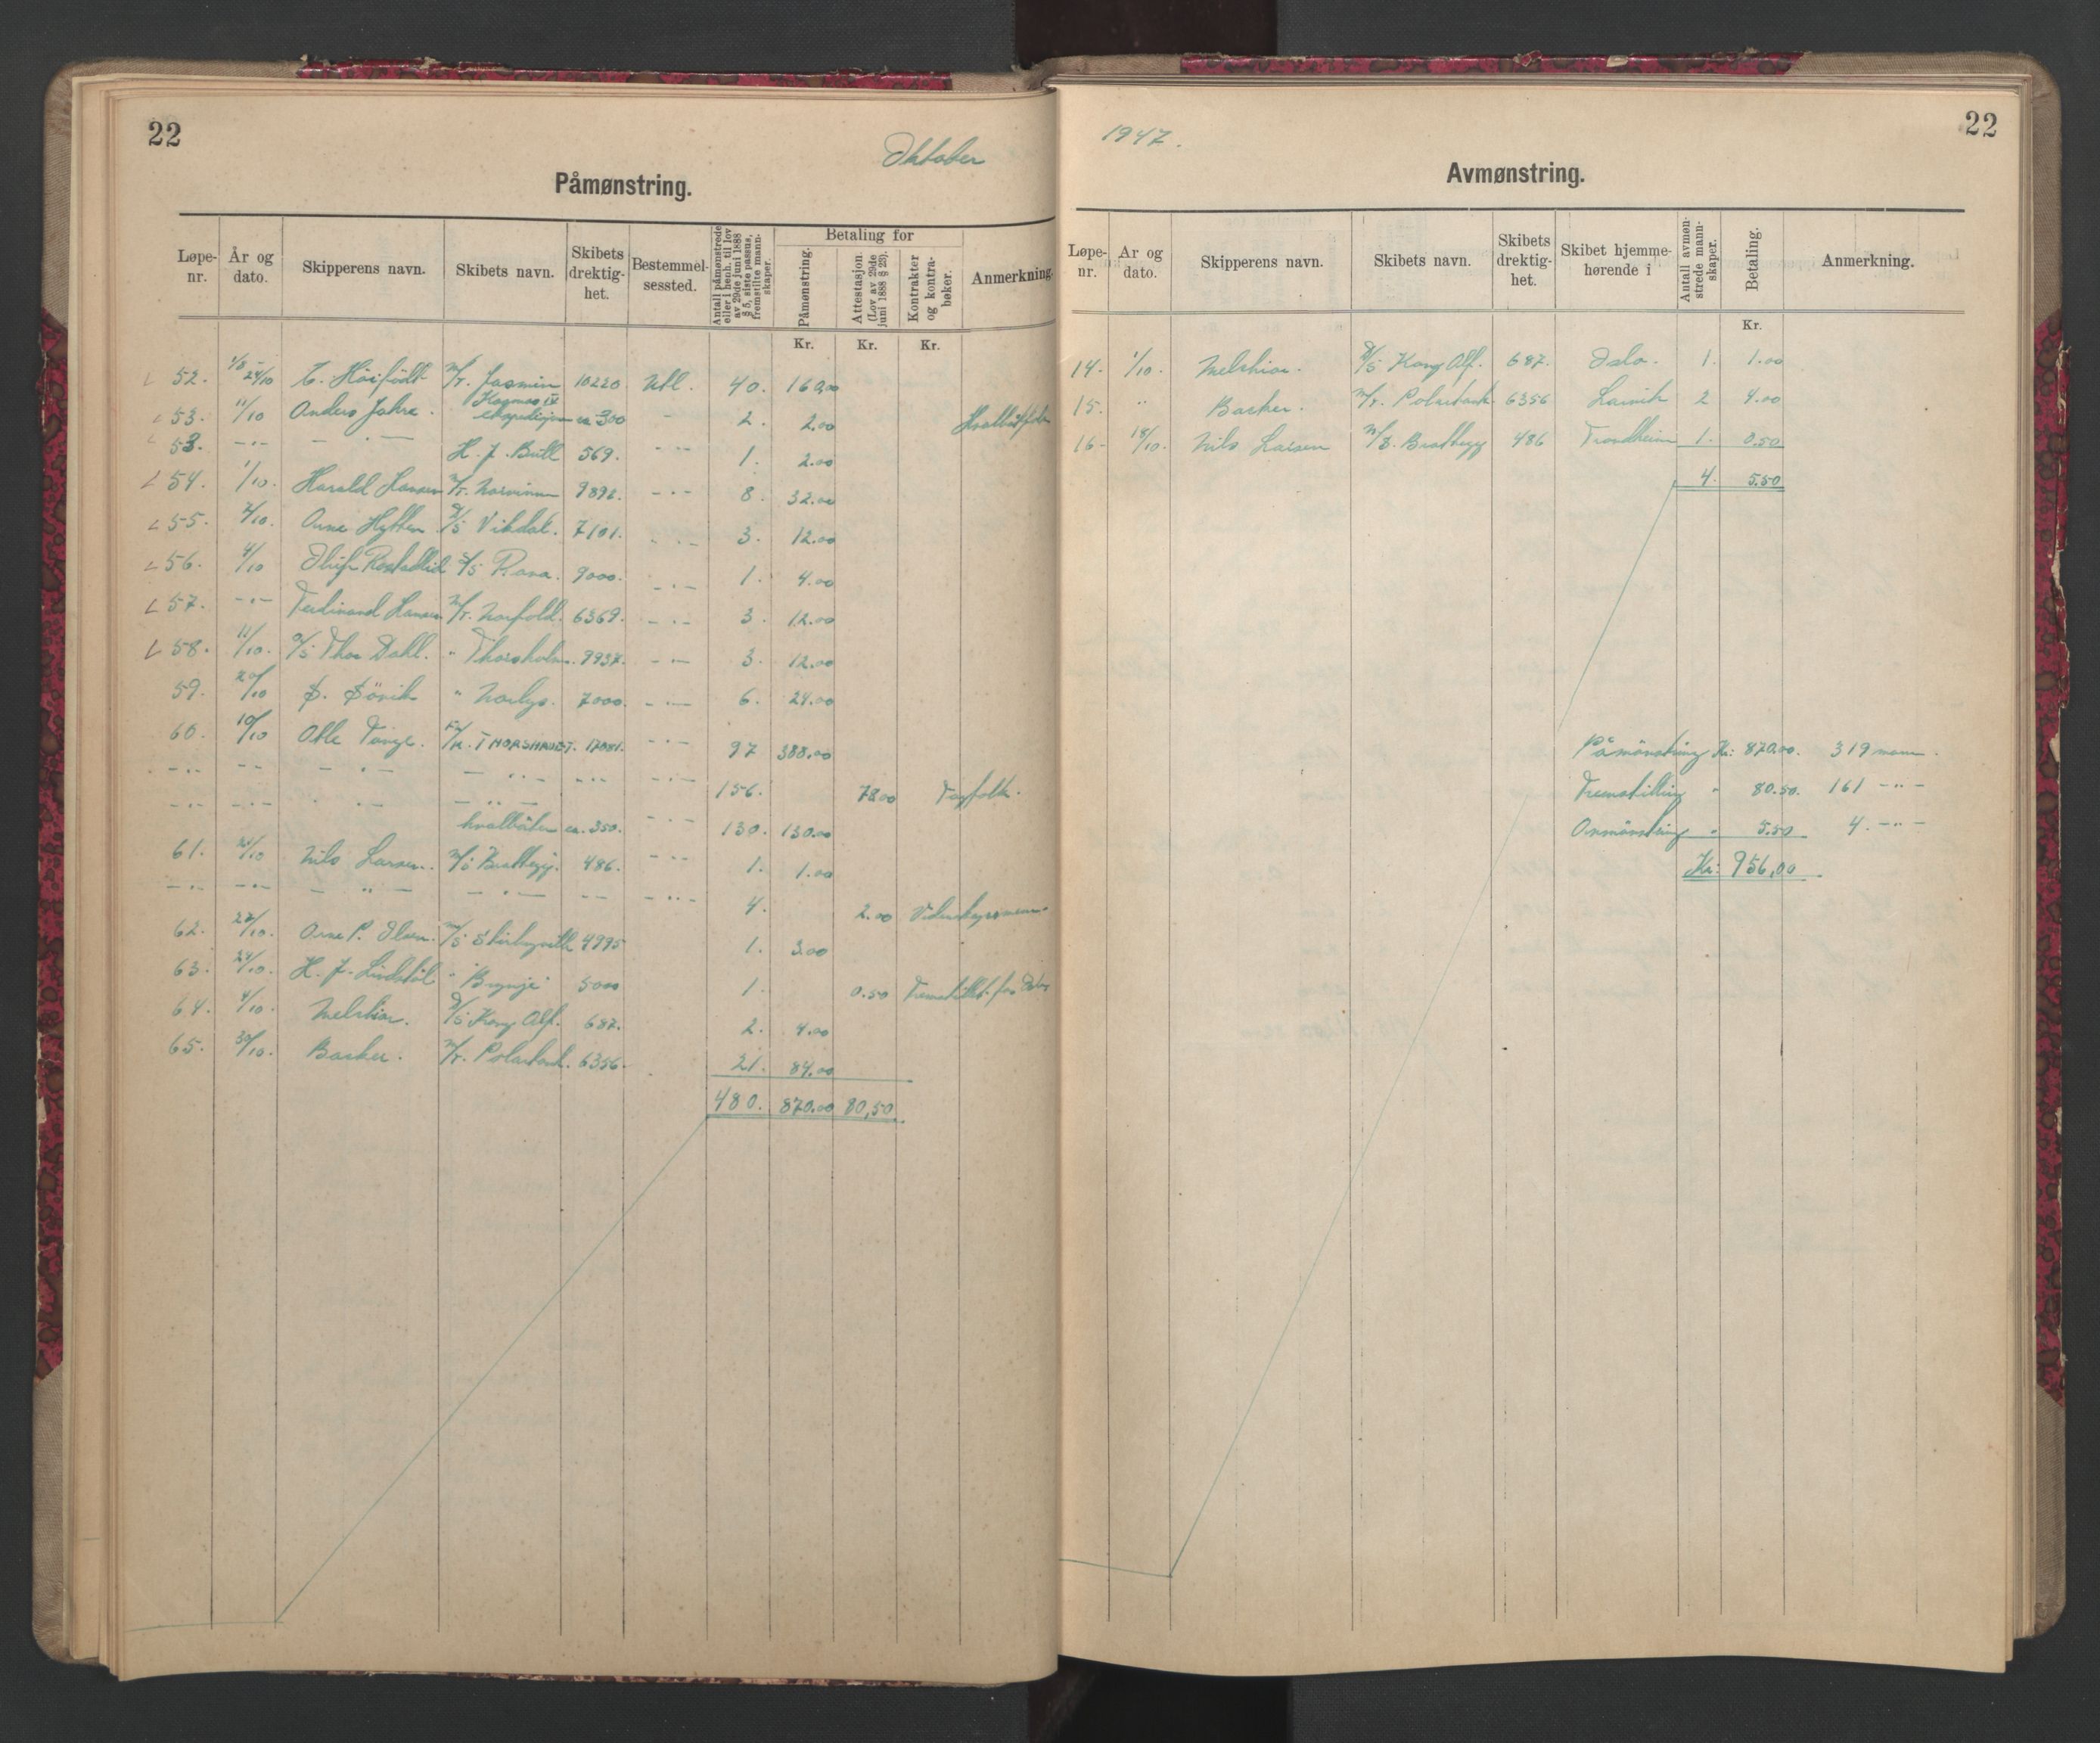 22
Oktober
Påmønstring.
Løpe-nr. År og dato. Skipperens navn. Skibets navn. Skibets drektig-het. Bestemmel-sessted. Antall påmønstrede eller i henh. til lov av 29de juni 1888 § 5, siste passus, fremstilte mann-skaper. Betaling for Påmønstring. Attestasjon (Lov av 29de juni 1888 § 29). Kontrakter og kontra-bøker. Anmerkning.
Kr. Kr. Kr.
52. 24/10 Höifödt M/T. Jasmin 10220 Utl. 40. 160,00
53. 11/10 Anders Jahre. Kosmos IV ekspedisjon ca 300 - 2. 2.00
53. -"- - " - H. J. Bull 569. -"- 1. 2.00
54. 1/10. Harald Hansen M/T. 9892. -"- 8. 32.00
55. 2/10. Arne Hytten D/S Vikdal. 7101. -"- 3. 12.00
56. 4/10 S/S Rana. 9000. -"- 1. 4.00
57. -"- Ferdinand Hansen M/T. Norfold. 6369. -"- 3. 12.00
58. 11/10. A/S Thor Dahl. " Thorsholm. 9937. -"- 3. 12.00
59. 20/10 S. Sörvik " Norlys. 7000. -"- 6. 24.00
60. 10/10 Olle Tange. F/K. THORSHAVET. 17081. -"- 97 388.00
-"- -"- - " - - " - -"- -"- 156. 78.00 Fagfolk.
-"- -"- " " - - " - hvalbåter ca. 350. -"- 130. 130.00
61. 21/10 Nils Larsen. M/S Brattegg. 486. -"- 1. 1.00
-"- -"- - " - - " - -- -"- 4. 2.00
62. 22/10. Arne P. Olsen. M/S 4995 1. 3.00
63. 24/10. H. J. " Brynje 5000 1. 0.50 Fremstillet for
64. 4/10. Melchior. D/S Kong Alf. 687. 2. 4.00
65. 30/10. Backer. M/T. Polartank. 6356. 21. 84.00
480. 870.00 80,50
1947.
22
Avmønstring.
Løpe-nr. År og dato. Skipperens navn. Skibets navn. Skibets drektig-het. Skibet hjemme-hørende i Antall avmøn-strede mann-skaper. Betaling. Anmerkning.
Kr.
14. 1/10. Melchior. D/S Kong Alf. 687. Oslo. 1. 1.00
15. " Backer. M/T. Polartank. 6356 Larvik 2 4.00
16- 18/10. Nils Larsen M/S. Brattegg 486 Trondheim 1. 0.50
4. 5.50
Påmönstring Kr: 870.00. 319 mann.
Fremstilling " 80.50. 161 -"-
Avmönstring " 5.50 4. -"-
Kr: 956,00